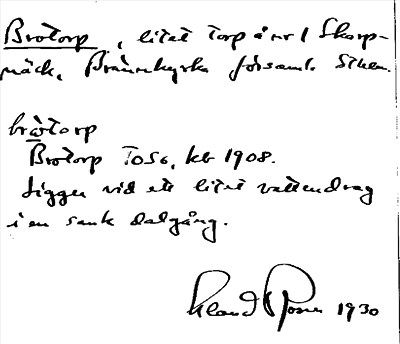 Brotorp, litet torp å nr 1 Skarp-
näck, Brännkyrka församl. Sthm.
brotorp
Brotorp TOSö, kb 1908.
Ligger vid ett litet vattendrag
i en sank dalgång.
1930